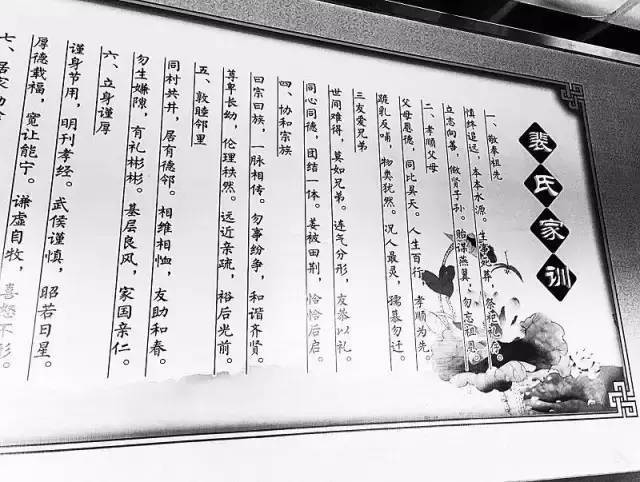 裴氏家训
一、敬奉祖先
慎终追远，本本水源。生事死葬，祭祀礼存。
立志向善，做贤子孙。贻谋燕翼，勿忘祖恩。
二、孝顺父母
父母恩德，同比昊天。人生百行，孝顺为先。
跪乳反哺，物类犹然。况人最灵，孺慕勿迁。
三友爱兄弟
世间难得，莫如兄弟。连气分形，友恭以礼。
同心同德，团结一体。姜被田荆，恰恰后启。
四、协和宗族
曰宗曰族，一脉相传。勿事纷争，和谐齐贤。
尊卑长幼，伦理秩然。远近亲疏，裕后光前。
五、敦睦邻里
同村共井，居有德邻。相维相恤，友助和春。
勿生嫌隙，有礼彬彬。基层良风，家国亲仁。
六、立身谨厚
谨身节用，明刊孝经。武侯谨慎，昭若日星。
厚德载福，宽让能宁。谦虚自牧，喜怒不形。
七、居家勤